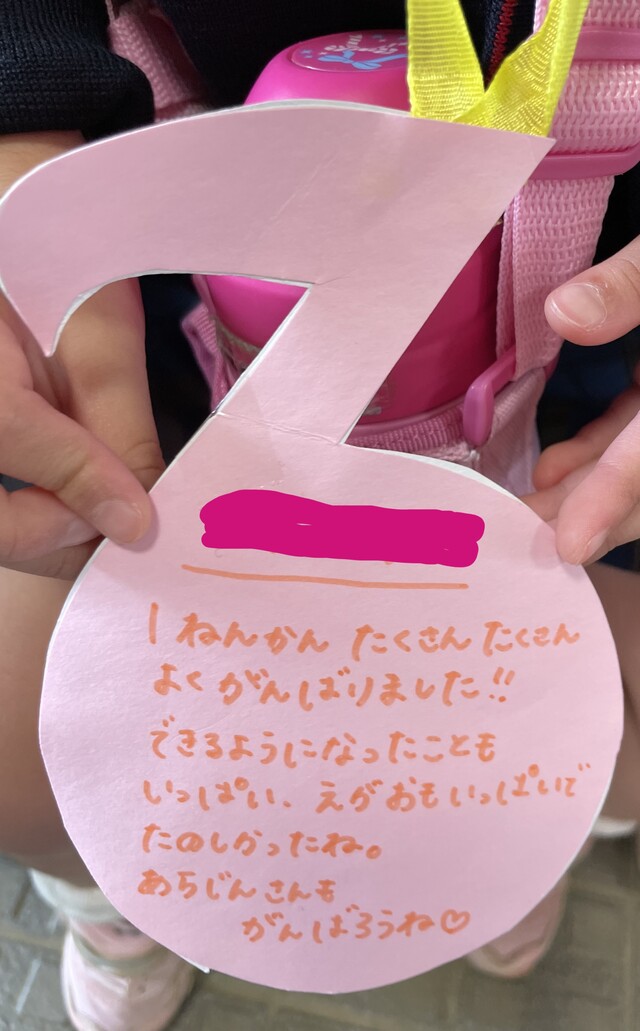 1ねんかん たくさんたくさん
よくがんばりました!!
できるようになったことも
いっぱい、えがおもいっぱいで
たのしかったね。
あらじんさんも
がんばろうね♡